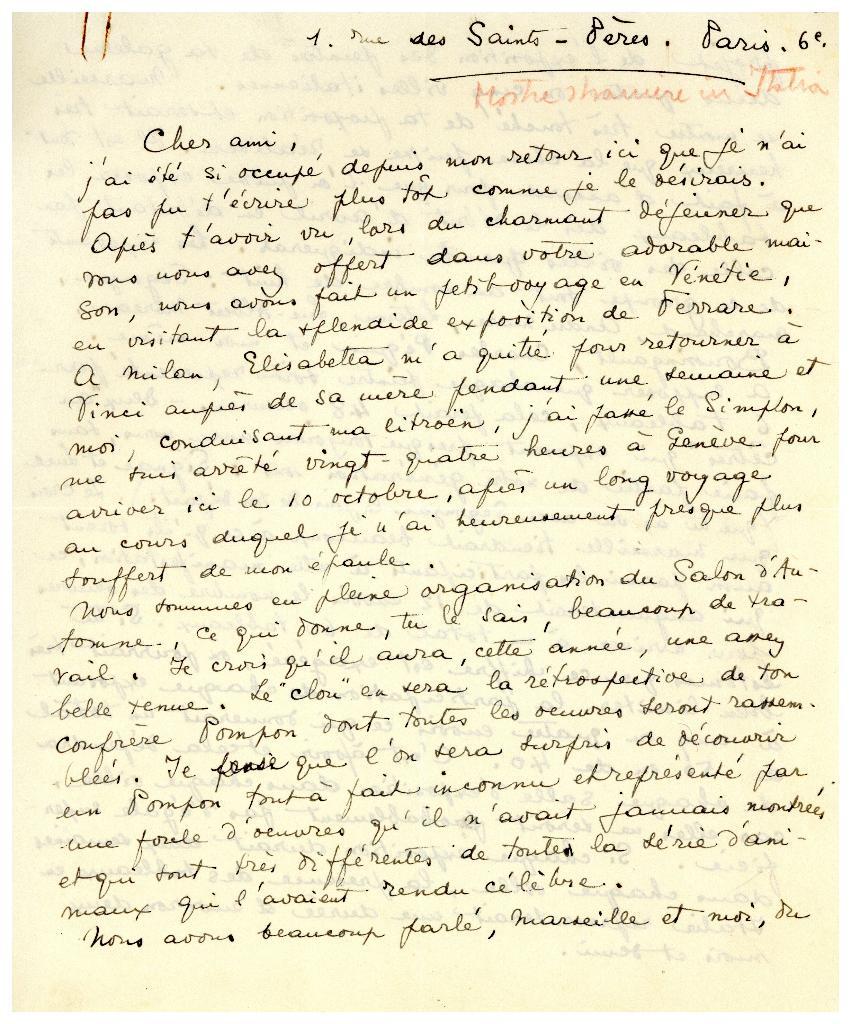 1. rue des Saints-Pères. Paris. 6e.
Mostre straniere in Italia
Cher ami,
j'ai été si occupé depuis mon retour ici que je n'ai
pas pu t'écrire plus tôt comme je le désirais.
Après t'avoir vu, lors du charmant déjeuner que
vous nous avez offert dans votre adorable mai-
son, nous avons fait un petit voyage en Vénétie,
en visitant la splendide exposition de Ferrare.
A Milan, Elisabetta m'a quitté pour retourner à
Vinci auprès de sa mère pendant une semaine et
moi, conduisant ma Citroën, j'ai passé le Simplon,
me suis arrêté vingt-quatre heures à Genève pour
arriver ici le 10 octobre, après un long voyage
au cours duquel je n'ai heureusement presque plus
souffert de mon épaule.
Nous sommes en pleine organisation du Salon d'Au-
tomne, ce qui donne, tu le sais, beaucoup de tra-
vail. Je crois qu'il aura, cette année, une assez
belle tenue. Le "clou" en sera la rétrospective de ton
confrère Pompon dont toutes les oeuvres seront rassem-
blées. Je pense que l'on sera surpris de découvrir
un Pompon tout à fait inconnu et représenté par
une foule d'oeuvres qu'il n'avait jamais montrées
et qui sont très différentes de toute la série d'ani-
maux qui l'avaient rendu célèbre.
Nous avons beaucoup parlé, Marseille et moi, du